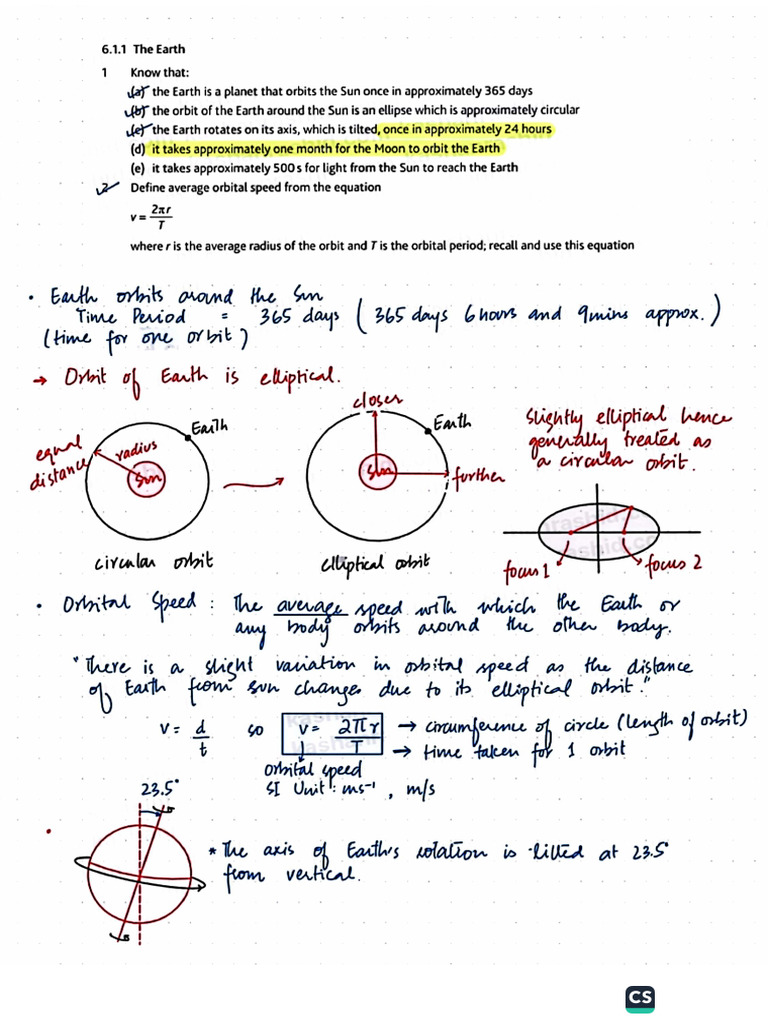 6.1.1 The Earth
1 Know that:
(a) the Earth is a planet that orbits the Sun once in approximately 365 days
(b) the orbit of the Earth around the Sun is an ellipse which is approximately circular
(c) the Earth rotates on its axis, which is tilted, once in approximately 24 hours
(d) it takes approximately one month for the Moon to orbit the Earth
(e) it takes approximately 500 s for light from the Sun to reach the Earth
2 Define average orbital speed from the equation
v = 2πr / T
where r is the average radius of the orbit and T is the orbital period; recall and use this equation
• Earth orbits around the Sun
Time Period = 365 days (365 days 6 hours and 9 mins approx.)
(time for one orbit)
→ Orbit of Earth is elliptical.
equal distance
radius
Sun
Earth
circular orbit
closer
Sun
Earth
further
elliptical orbit
Slightly elliptical hence
generally treated as
a circular orbit.
focus 1
focus 2
• Orbital Speed : The average speed with which the Earth or
any body orbits around the other body.
"There is a slight variation in orbital speed as the distance
of Earth from sun changes due to its elliptical orbit."
v = d / t so v = 2πr / T → circumference of circle (length of orbit)
→ time taken for 1 orbit
orbital speed
SI Unit : ms⁻¹ , m/s
23.5°
* The axis of Earth's rotation is tilted at 23.5°
from vertical.
CS